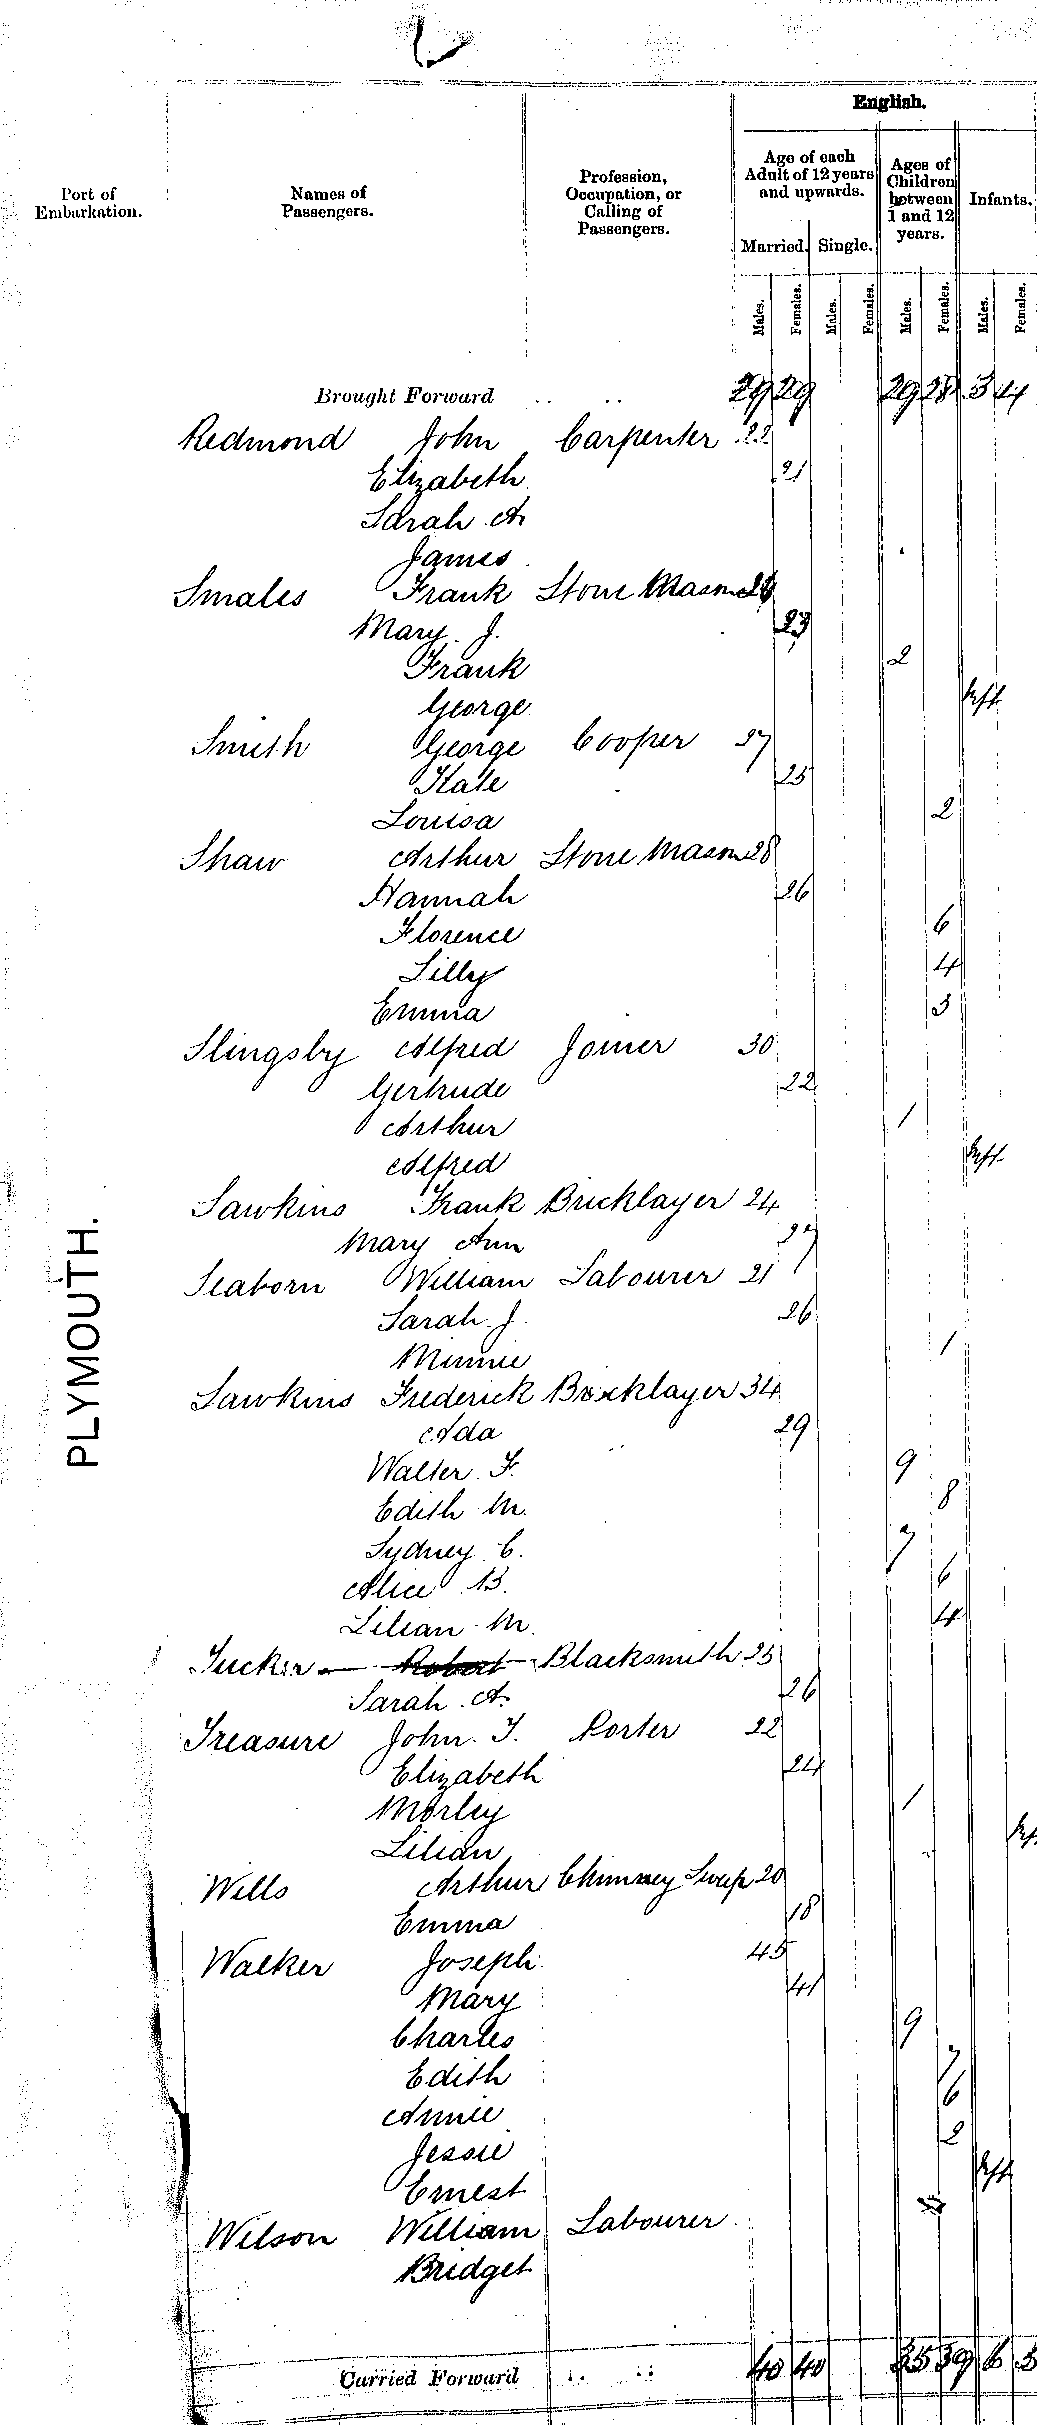 English.
Port of Embarkation.
Names of Passengers.
Profession, Occupation, or Calling of Passengers.
Age of each Adult of 12 years and upwards.
Ages of Children between 1 and 12 years.
Infants.
Married. Single.
Males. Females. Males. Females. Males. Females. Males. Females.
Brought Forward .. .. 29 29 29 28 3 4
Redmond John Carpenter 22
Elizabeth 21
Sarah A.
James
Smales Frank Stone Mason
Mary J. 23
Frank 2
George
Smith George Cooper 27
Kate 25
Louisa 2
Shaw Arthur Stone Mason 28
Hannah 26
Florence 6
Lilly 4
Emma 3
Slingsby Alfred Joiner 30
Gertrude 22
Arthur 1
Alfred
Sawkins Frank Bricklayer 24
Mary Ann
Seaborn William Labourer 21
Sarah J. 26
Minnie 1
Sawkins Frederick Bricklayer 34
Ada 29
Walter F. 9
Edith M. 8
Sydney C. 7
Alice B. 6
Lilian M. 4
Tucker Robert Blacksmith 25
Sarah A. 26
Treasure John T. Porter 22
Elizabeth 24
Morley 1
Lilian
Wills Arthur Chimney Sweep 20
Emma 18
Walker Joseph 45
Mary 41
Charles 9
Edith 7
Annie 6
Jessie 2
Ernest
Wilson William Labourer
Bridget
Carried Forward .. .. 40 40 35 39 6 5
PLYMOUTH.